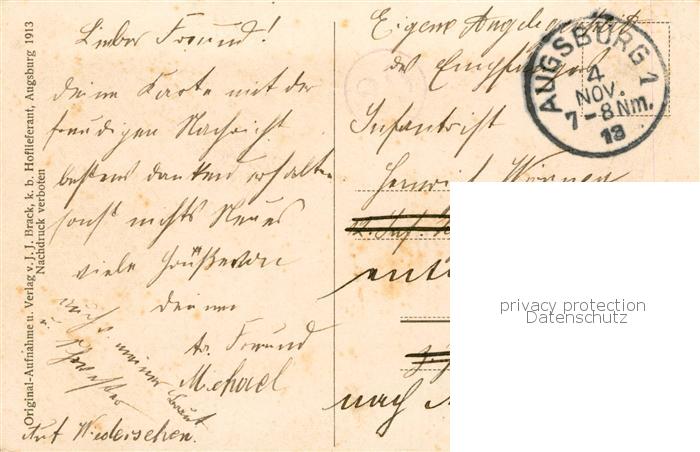 Original-Aufnahme u. Verlag v. J. J. Brack, k. b. Hoflieferant, Augsburg 1913
Nachdruck verboten
Lieber Freund!
deine Karte mit der
freudigen Nachricht
bestens dankend erhalten
sonst nichts Neues
viele Grüße von
deinem
tr. Freund
Michael
auch meiner Braut
u. Schwester
Auf Wiedersehen.
Eigene Angelegenheit
des Empfängers
Infanterist
Heinrich
nach
AUGSBURG 1
4
NOV.
7-8 Nm.
13
privacy protection
Datenschutz